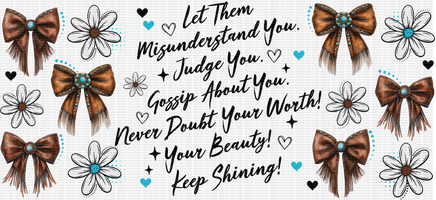 Let Them
Misunderstand You.
Judge You.
Gossip About You.
Never Doubt Your Worth!
Your Beauty!
Keep Shining!